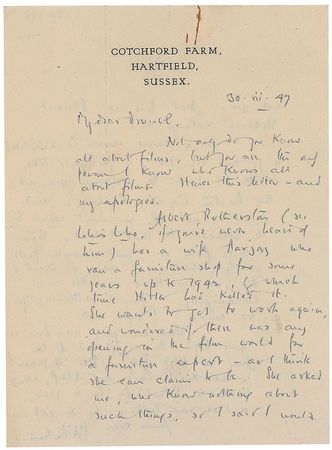 COTCHFORD FARM,
HARTFIELD,
SUSSEX.
30 · vii · 47
My dear
Not only do you know
all about films, but you are the only
person I know who knows all
about films. Hence this letter – and
my apologies.
Albert Rotherston (so
who's who, if you've never heard of
him) has a wife Margery who
ran a furniture shop for some
years up to 1942, by which
time Hitler had killed it.
She wants to get to work again,
and wondered if there was any
opening in the film world for
a furniture expert – as I think
she can claim to be. She asked
me, who know nothing about
such things, so I said I would